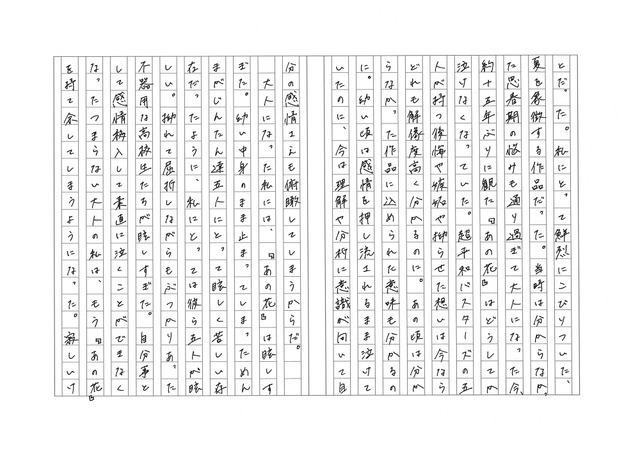 とだった。私にとって鮮烈にこびりついた、
夏を象徴する作品だった。当時は分からなかっ
た思春期の悩みも通り過ぎて大人になった今、
約十五年ぶりに観た『あの花』はどうしてか
泣けなくなっていた。超平和バスターズの五
人が持つ後悔や嫉妬や拗らせた想いは今なら
どれも解像度高く分かるのに、あの頃は分か
らなかった作品に込められた意味も分かるの
に。幼い頃は感情を押し流されるまま泣けて
いたのに、今は理解や分析に意識が向いて自
分の感情さえも俯瞰してしまうからだ。
　大人になった私には、『あの花』は眩しす
ぎた。幼い中身のまま止まってしまっためん
まがじんたん達五人にとって眩しく苦しい存
在だったように、私にとっては彼ら五人が眩
しい。拗れて屈折しながらもぶつかりあった
不器用な高校生たちが眩しすぎた。自分事と
して感情移入して素直に泣くことができなく
なった。つまらない大人の私は、もう『あの花』
を持て余してしまうようになった。寂しいけ